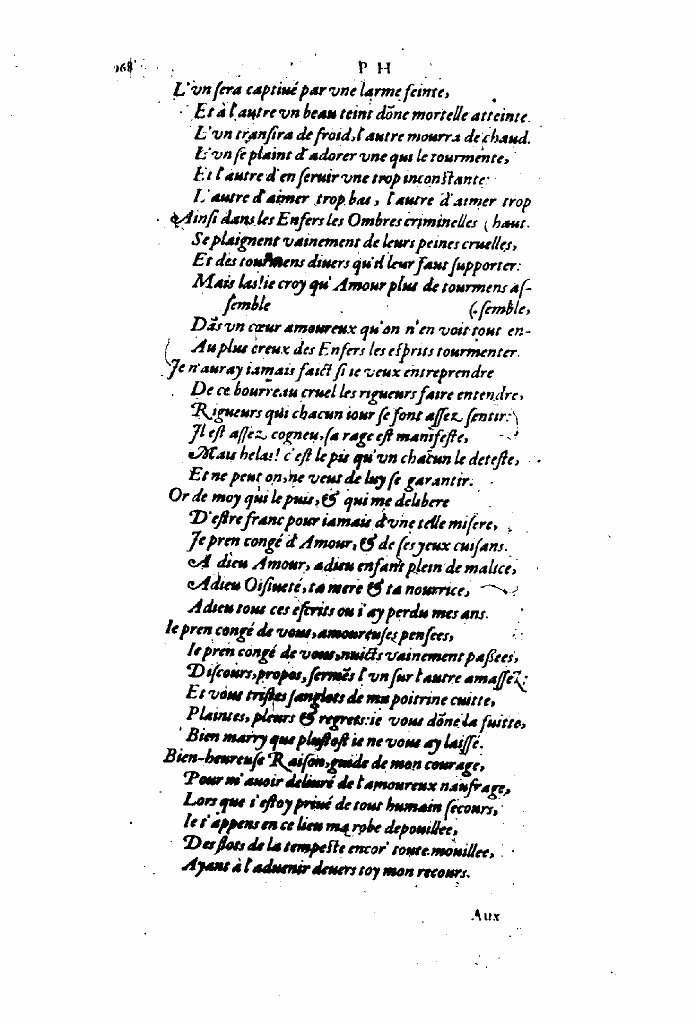 168
P H
L'vn sera captiué par vne larme feinte,
Et à l'autre vn beau teint dõne mortelle atteinte.
L'vn transira de froid, l'autre mourra de chaud.
L'vn se plaint d'adorer vne qui le tourmente,
Et l'autre d'en seruir vne trop inconstante:
L'autre d'aimer trop bas, l'autre d'aimer trop
Ainsi dans les Enfers les Ombres criminelles (haut.
Se plaignent vainement de leurs peines cruelles,
Et des tourmens diuers qu'il leur faut supporter:
Mais las! ie croy qu'Amour plus de tourmens as-
semble (semble,
Dãs vn cœur amoureux qu'on n'en voit tout en-
Au plus creux des Enfers les esprits tourmenter.
Je n'auray iamais faict si ie veux entreprendre
De ce bourreau cruel les rigueurs faire entendre,
Rigueurs qui chacun iour se font assez sentir:
Il est assez cogneu, sa rage est manifeste,
Mais helas! c'est le pis qu'vn chacun le deteste,
Et ne peut on, ne veut de luy se garantir.
Or de moy qui le puis, & qui me delibere
D'estre franc pour iamais d'vne telle misere,
Je pren congé d'Amour, & de ses yeux cuisans.
A dieu Amour, adieu enfant plein de malice,
Adieu Oisiueté, ta mere & ta nourrice,
Adieu tous ces escrits ou i'ay perdu mes ans.
Ie pren congé de vous, amoureuses pensees,
Ie pren congé de vous, nuicts vainement passees,
Discours, propos, sermẽs l'vn sur l'autre amassez:
Et vous tristes sanglots de ma poitrine cuitte,
Plaintes, pleurs & regrets: ie vous dõne la fuitte,
Bien marry que plustost ie ne vous ay laissé.
Bien-heureuse Raison, guide de mon courage,
Pour m'auoir deliuré de l'amoureux naufrage,
Lors que i'estoy priué de tout humain secours,
Ie t'appens en ce lieu ma robe depouillee,
Des flots de la tempeste encor' toute mouillee,
Ayant à l'aduenir deuers toy mon recours.
Aux